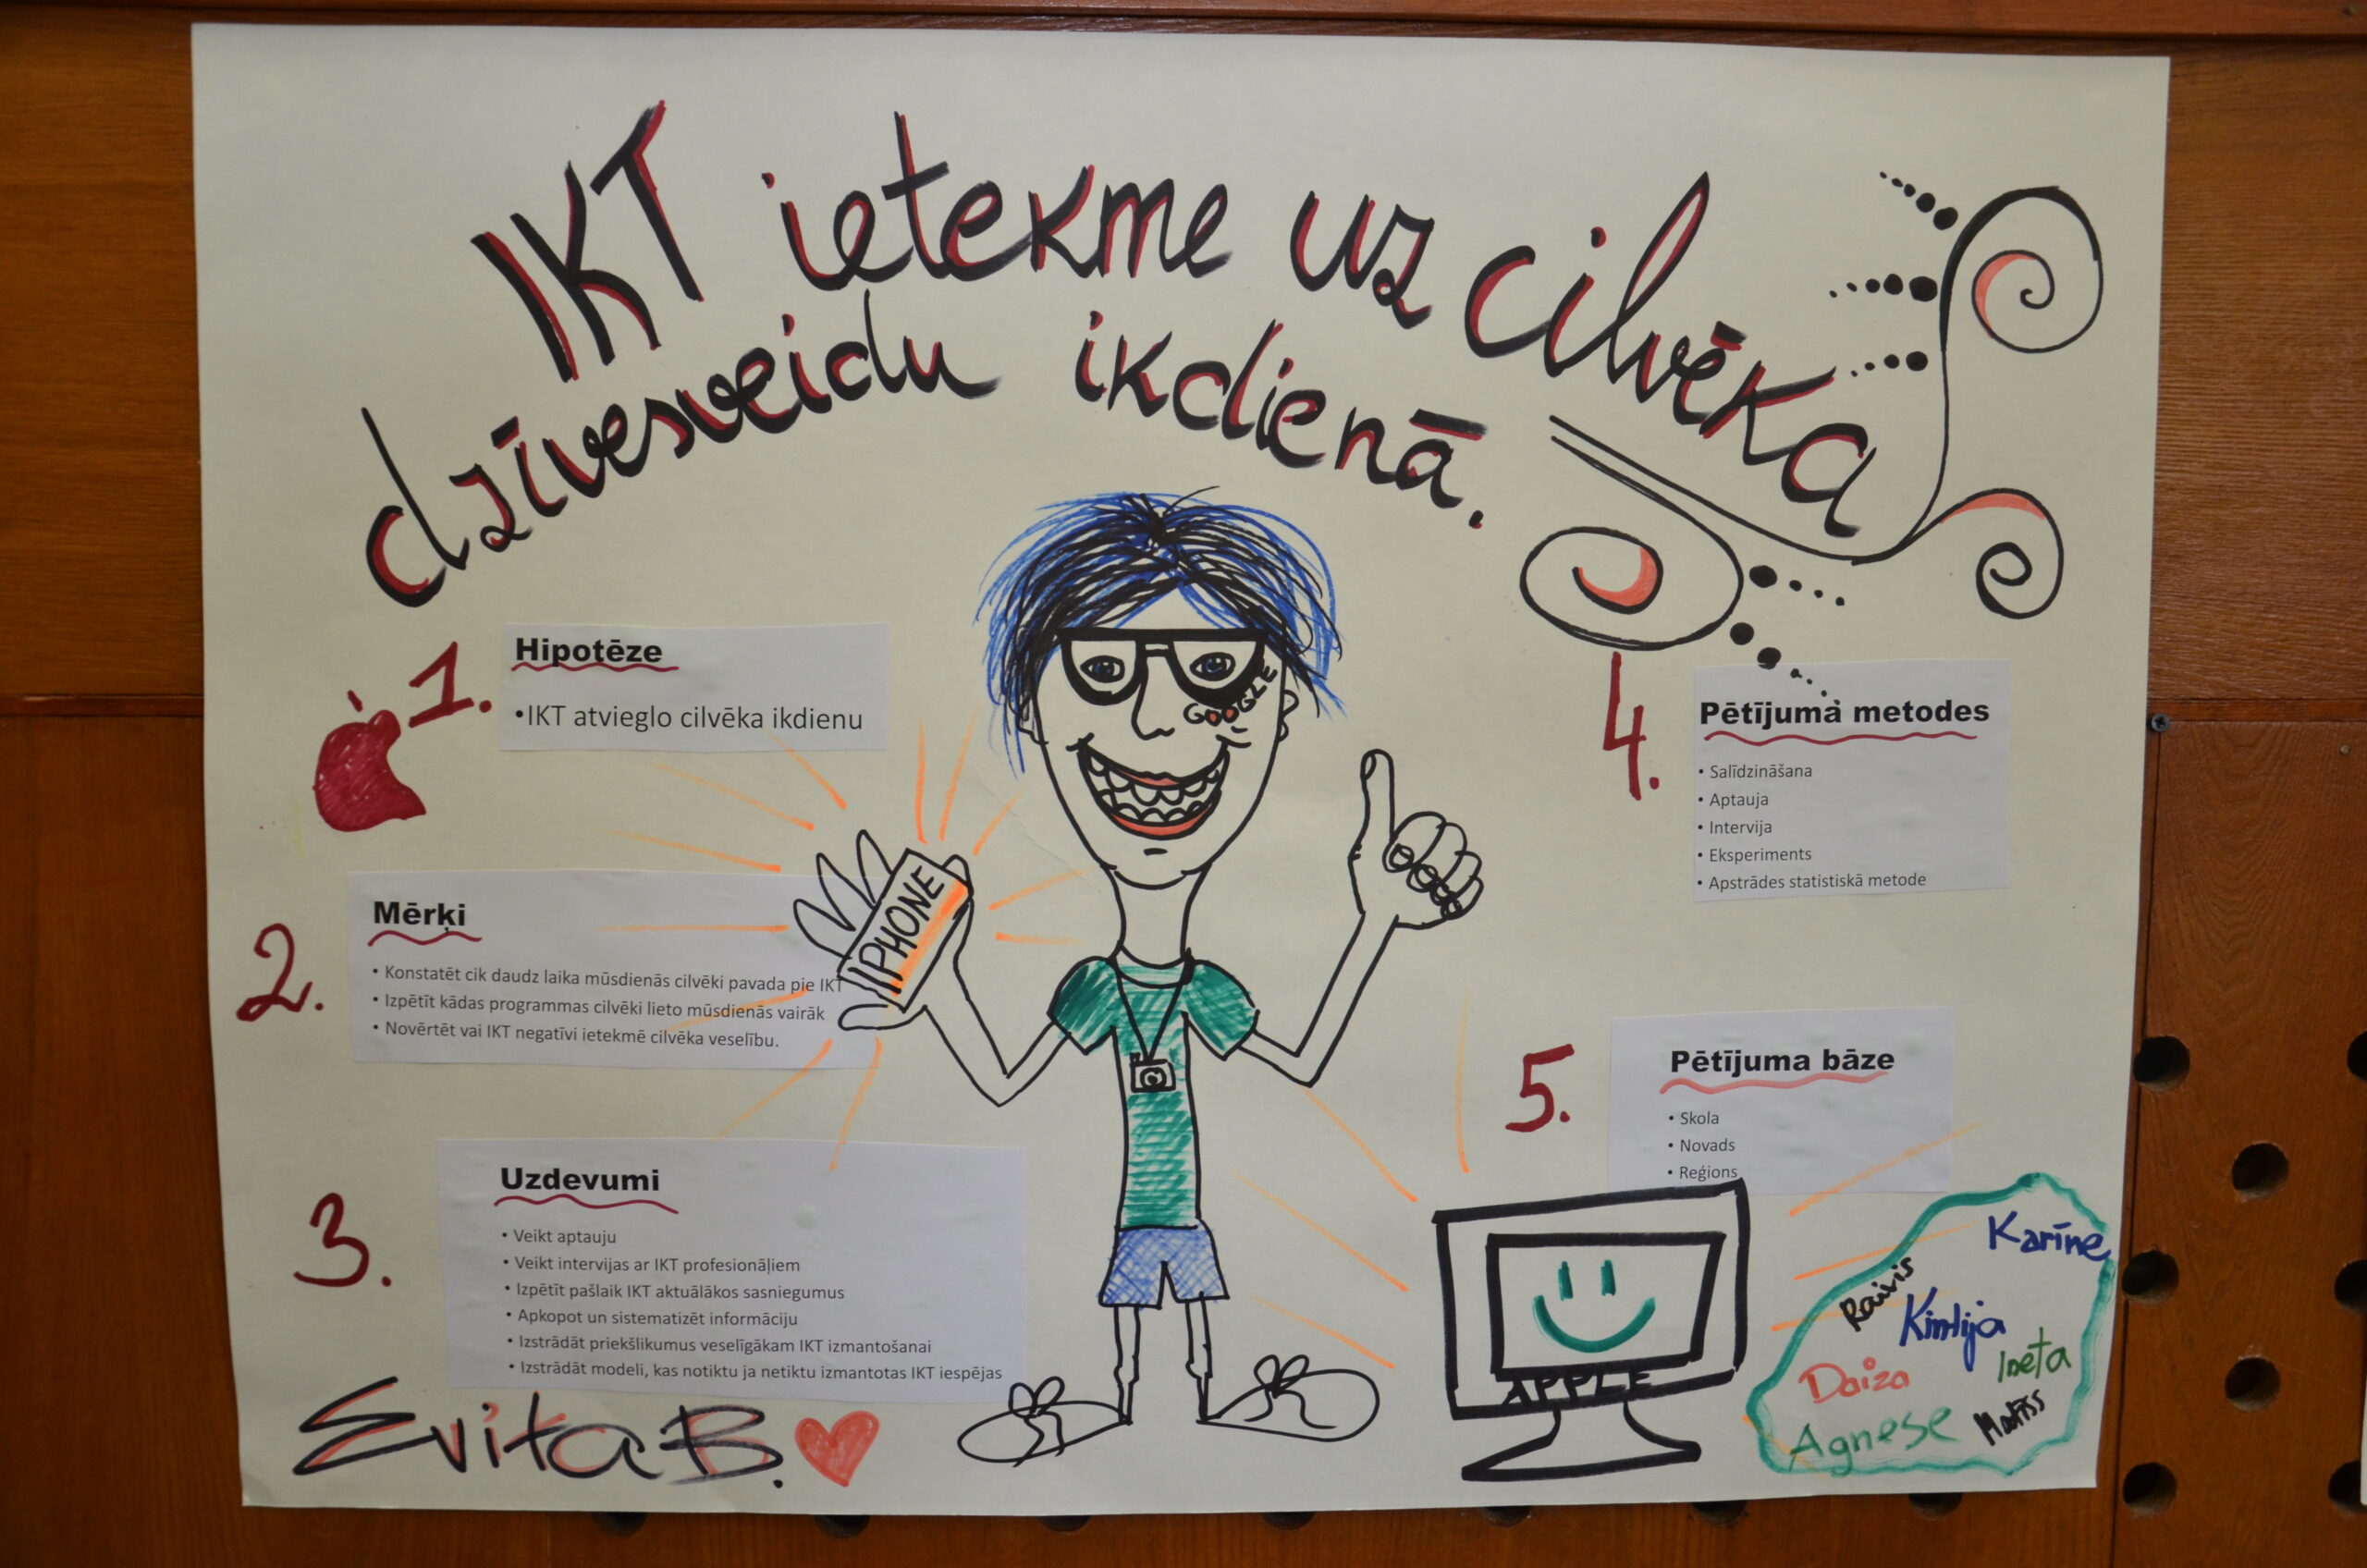 IKT ietekme uz cilvēka
dzīvesveidu ikdienā.
1.
Hipotēze
•IKT atvieglo cilvēka ikdienu
2.
Mērķi
• Konstatēt cik daudz laika mūsdienās cilvēki pavada pie IKT
• Izpētīt kādas programmas cilvēki lieto mūsdienās vairāk
• Novērtēt vai IKT negatīvi ietekmē cilvēka veselību.
3.
Uzdevumi
• Veikt aptauju
• Veikt intervijas ar IKT profesionāļiem
• Izpētīt pašlaik IKT aktuālākos sasniegumus
• Apkopot un sistematizēt informāciju
• Izstrādāt priekšlikumus veselīgākam IKT izmantošanai
• Izstrādāt modeli, kas notiktu ja netiktu izmantotas IKT iespējas
Evita B.
GOOGLE
IPHONE
4.
Pētījuma metodes
• Salīdzināšana
• Aptauja
• Intervija
• Eksperiments
• Apstrādes statistiskā metode
5.
Pētījuma bāze
• Skola
• Novads
• Reģions
APPLE
Karīne
Raivis
Kintija
Ineta
Daiza
Agnese
Matīss